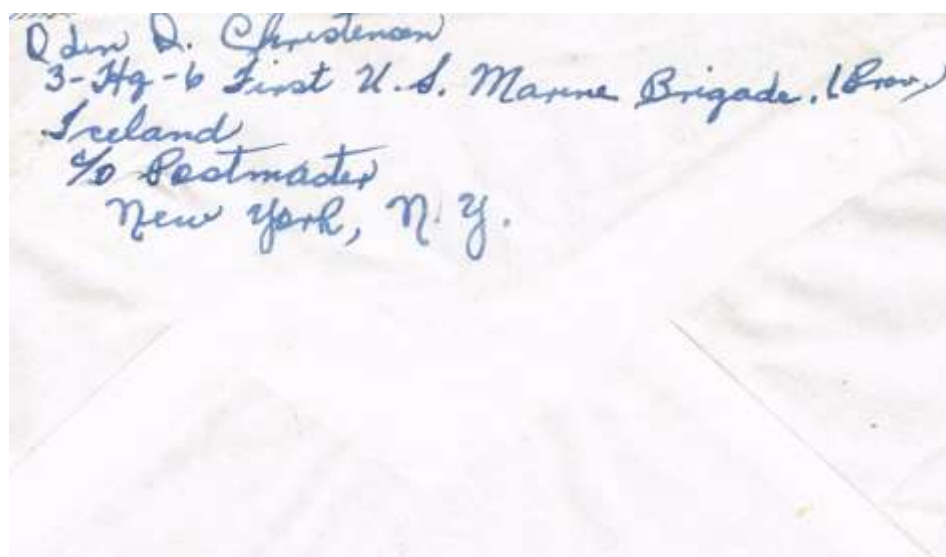 Odin D. Christensen
3-Hq-6 First U.S. Marine Brigade. (Prov)
Iceland
c/o Postmaster
New York, N.Y.